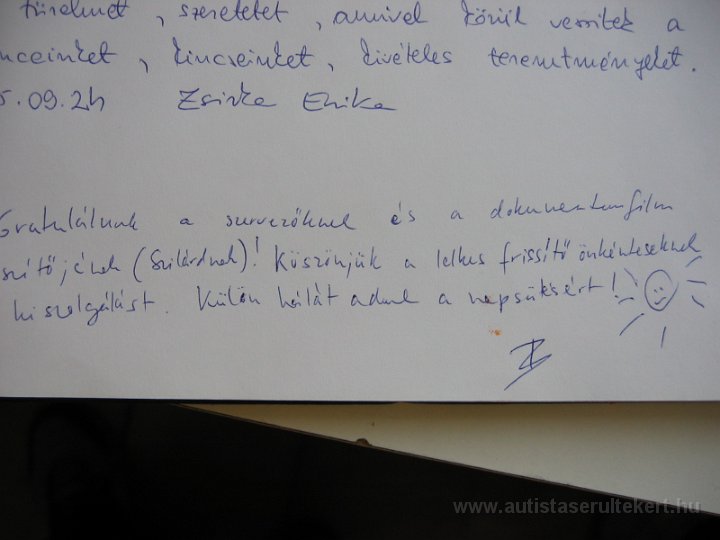 türelmet, szeretetet, amivel körül veszitek a
kincseinket, kivételes teremtményeket.
.09.24 Zsirka Erika
Gratulálunk a szervezőknek és a dokumentumfilm
szítőjének (Szilárdnak)! Köszönjük a lelkes frissítő önkénteseknek
kiszolgálást. Külön hálát adunk a napsütésért!
www.autistaserultekert.hu